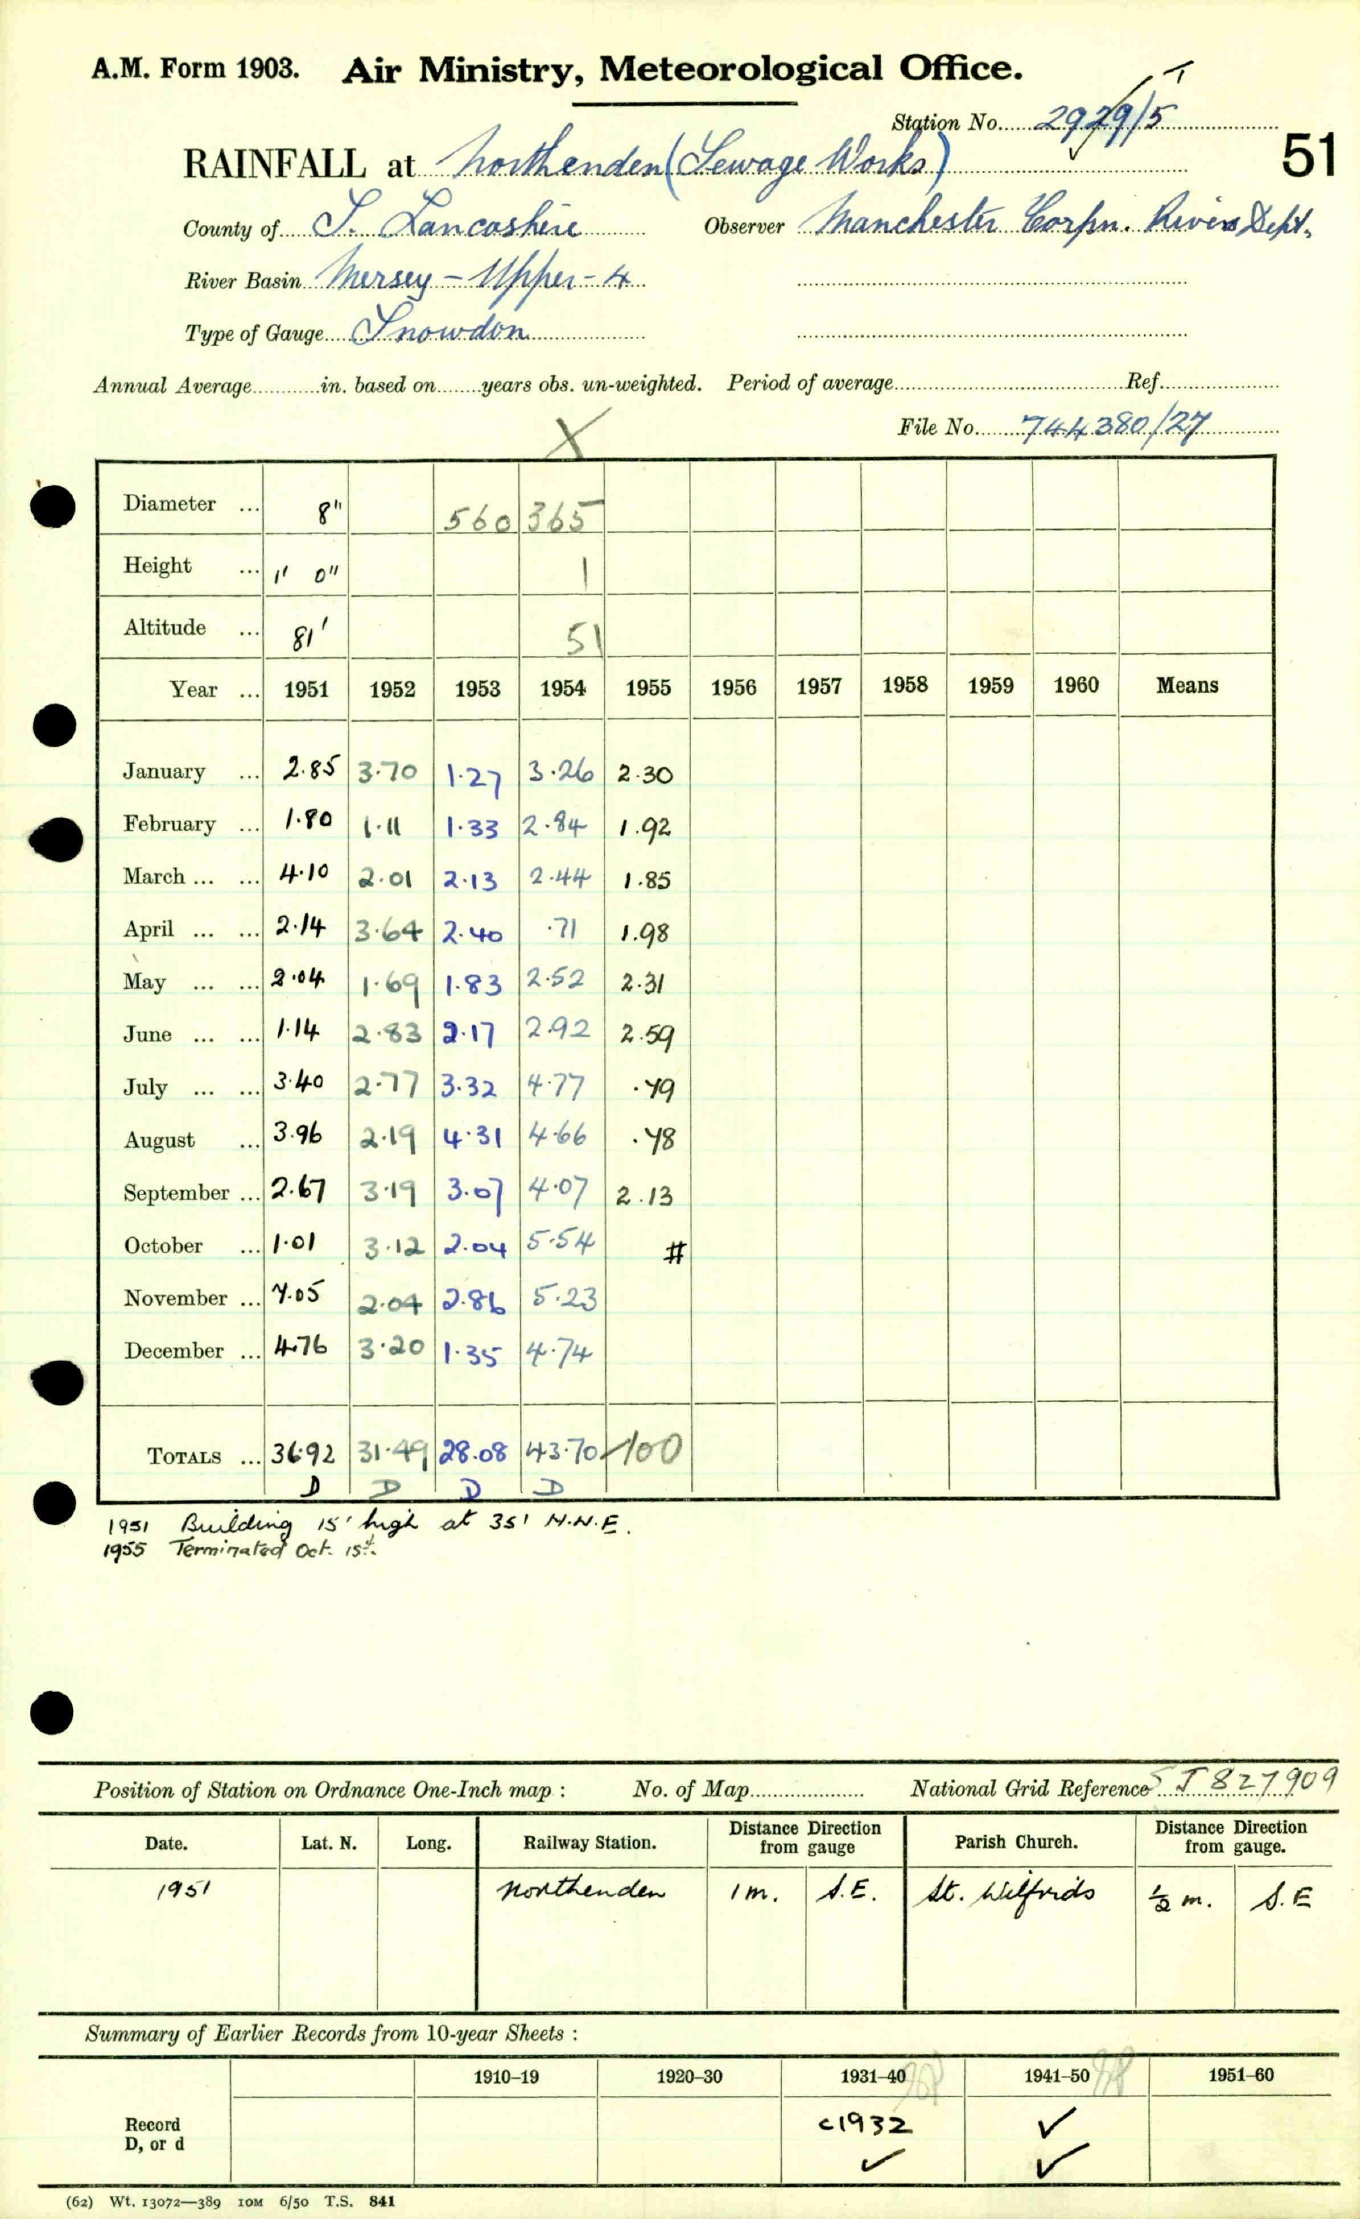 A.M. Form 1903. Air Ministry, Meteorological Office.
Station No. 2929/5
51
RAINFALL at Northenden (Sewage Works)
County of S. Lancashire Observer Manchester Corpn. Rivers Dept.
River Basin Mersey - Upper - 4
Type of Gauge Snowdon
Annual Average in. based on years obs. un-weighted. Period of average Ref.
X File No. 744380/27
Diameter ... 8" 560 365
Height ... 1' 0" 1
Altitude ... 81' 51
Year ... 1951 1952 1953 1954 1955 1956 1957 1958 1959 1960 Means
January ... 2.85 3.70 1.27 3.26 2.30
February ... 1.80 1.11 1.33 2.84 1.92
March ... ... 4.10 2.01 2.13 2.44 1.85
April ... ... 2.14 3.64 2.40 .71 1.98
May ... ... 2.04 1.69 1.83 2.52 2.31
June ... ... 1.14 2.83 2.17 2.92 2.59
July ... ... 3.40 2.77 3.32 4.77 .79
August ... 3.96 2.19 4.31 4.66 .78
September ... 2.67 3.19 3.07 4.07 2.13
October ... 1.01 3.12 2.04 5.54 #
November ... 7.05 2.04 2.86 5.23
December ... 4.76 3.20 1.35 4.74
TOTALS ... 36.92 31.49 28.08 43.70 100
D D D D
1951 Building 15' high at 35' N.N.E.
1955 Terminated Oct. 15th.
Position of Station on Ordnance One-Inch map : No. of Map National Grid Reference SJ 827909
Date. Lat. N. Long. Railway Station. Distance from Direction gauge Parish Church. Distance from Direction gauge.
1951 Northenden 1 m. S.E. St. Wilfrids ½ m. S.E
Summary of Earlier Records from 10-year Sheets :
1910–19 1920–30 1931–40 1941–50 1951–60
Record c1932 ✓
D, or d ✓ ✓
(62) Wt. 13072—389 10M 6/50 T.S. 841